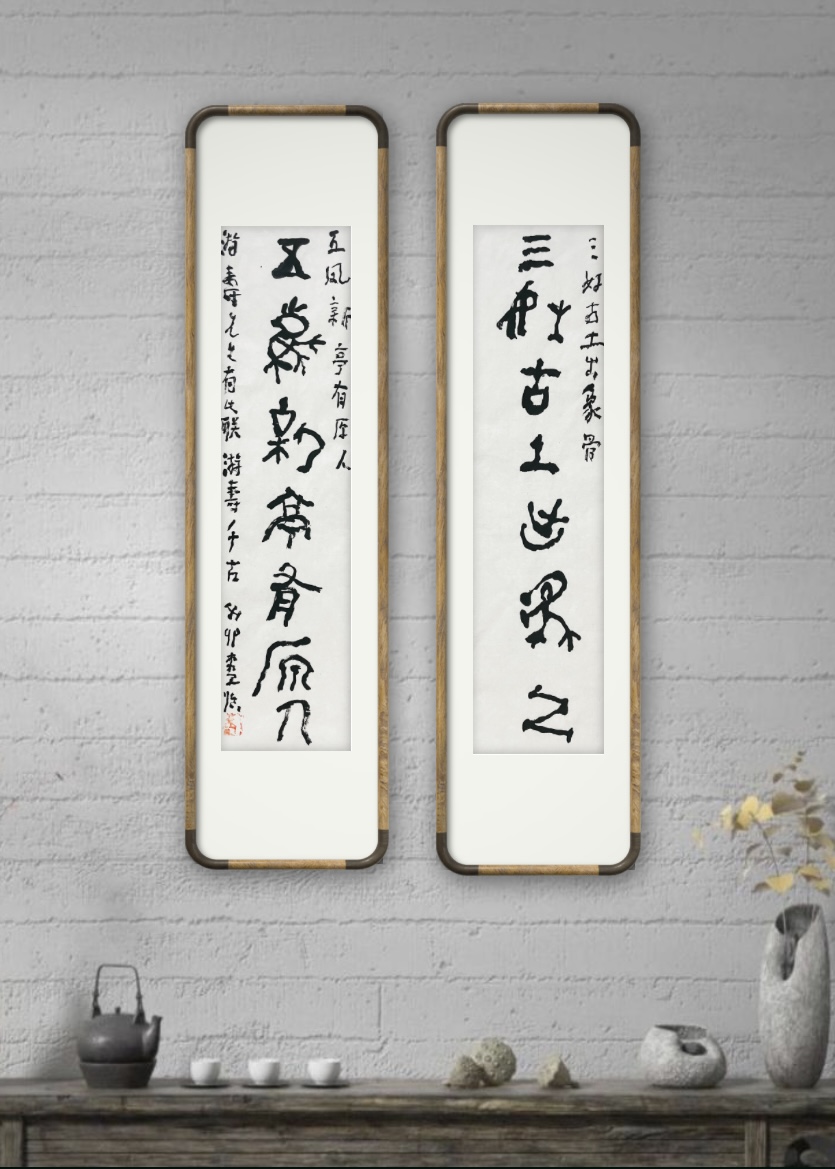 三好古土出象骨
三好古土出象骨
五凤新亭有原人
五鳳新亭有原人
游寿先生有此联 游寿千古 癸卯